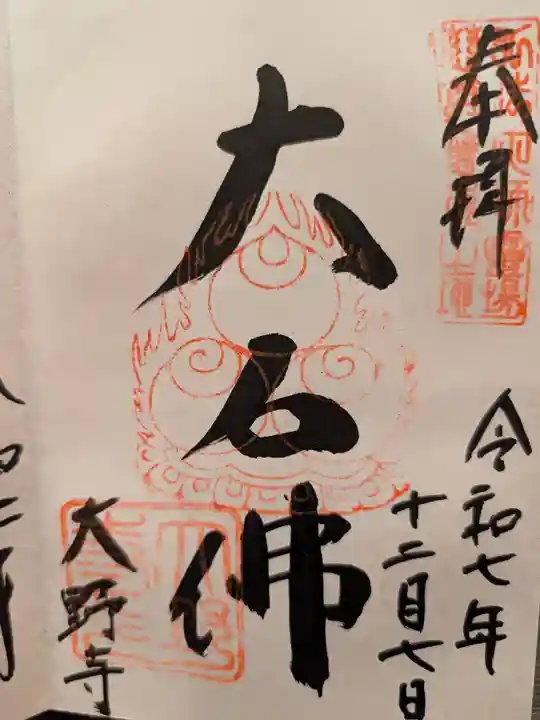 奉拝
令和七年
十二月七日
大石佛
大野寺